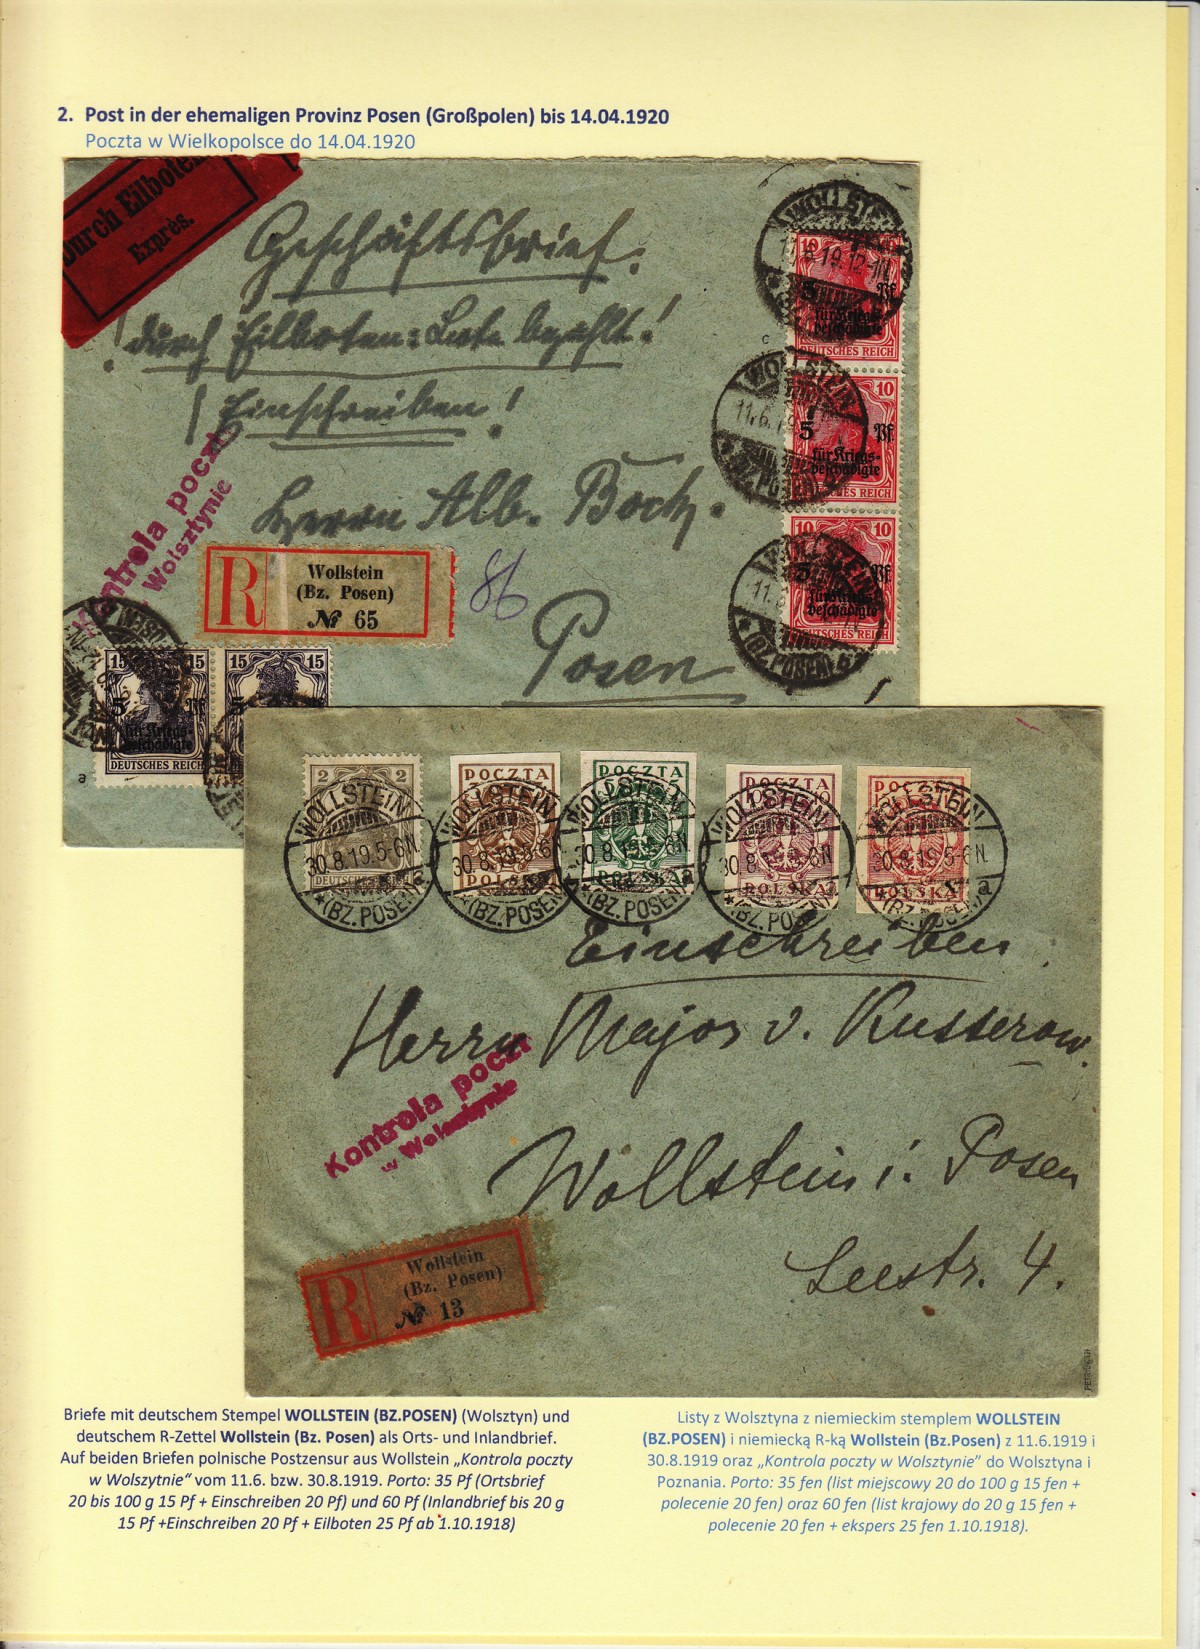 2. Post in der ehemaligen Provinz Posen (Großpolen) bis 14.04.1920
Poczta w Wielkopolsce do 14.04.1920
Durch Eilboten
Exprès.
Geschäftsbrief.
durch Eilboten: Bote bezahlt!
Einschreiben!
Herrn Alb. Bock.
Posen
86
Kontrola poczt
Wolsztynie
R
Wollstein
(Bz. Posen)
№ 65
WOLLSTEIN
11.6.19.12-1N.
10
5 Pf
für Kriegs-
beschädigte
DEUTSCHES REICH
c
WOLLSTEIN
11.6.19
(BZ. POSEN)
10
5 Pf
für Kriegs-
beschädigte
DEUTSCHES REICH
WOLLSTEIN
11.
*(BZ.POSEN) b
10 10
5 Pf
für Kriegs-
beschädigte
DEUTSCHES REICH
15 15
5 Pf
für Kriegs-
beschädigte
DEUTSCHES REICH
15 15
5
a
2 2
DEUTSCHES REICH
WOLLSTEIN
30.8.19.5-6N.
*(BZ.POSEN) a
POCZTA
POLSKA
WOLLSTEIN
30.8.19.5-6N
*(BZ.POSEN)
POCZTA
POLSKA
WOLLSTEIN
30.8.19.5-6N
*(BZ.POSEN) a
POCZTA
POLSKA
WOLLSTEIN
30.8.19.5-6N
*(BZ.POSEN) a
POCZTA
POLSKA
WOLLSTEIN
30.8.19.5-6N.
(BZ.POSEN) a
Einschreiben
Herrn Major v. Russerow.
Kontrola poczt
w Wolsztynie
Wollstein i. Posen
Seestr. 4.
R
Wollstein
(Bz. Posen)
№ 13
Briefe mit deutschem Stempel WOLLSTEIN (BZ.POSEN) (Wolsztyn) und
deutschem R-Zettel Wollstein (Bz. Posen) als Orts- und Inlandbrief.
Auf beiden Briefen polnische Postzensur aus Wollstein „Kontrola poczty
w Wolszytnie“ vom 11.6. bzw. 30.8.1919. Porto: 35 Pf (Ortsbrief
20 bis 100 g 15 Pf + Einschreiben 20 Pf) und 60 Pf (Inlandbrief bis 20 g
15 Pf +Einschreiben 20 Pf + Eilboten 25 Pf ab 1.10.1918)
Listy z Wolsztyna z niemieckim stemplem WOLLSTEIN
(BZ.POSEN) i niemiecką R-ką Wollstein (Bz.Posen) z 11.6.1919 i
30.8.1919 oraz „Kontrola poczty w Wolsztynie” do Wolsztyna i
Poznania. Porto: 35 fen (list miejscowy 20 do 100 g 15 fen +
polecenie 20 fen) oraz 60 fen (list krajowy do 20 g 15 fen +
polecenie 20 fen + ekspers 25 fen 1.10.1918).